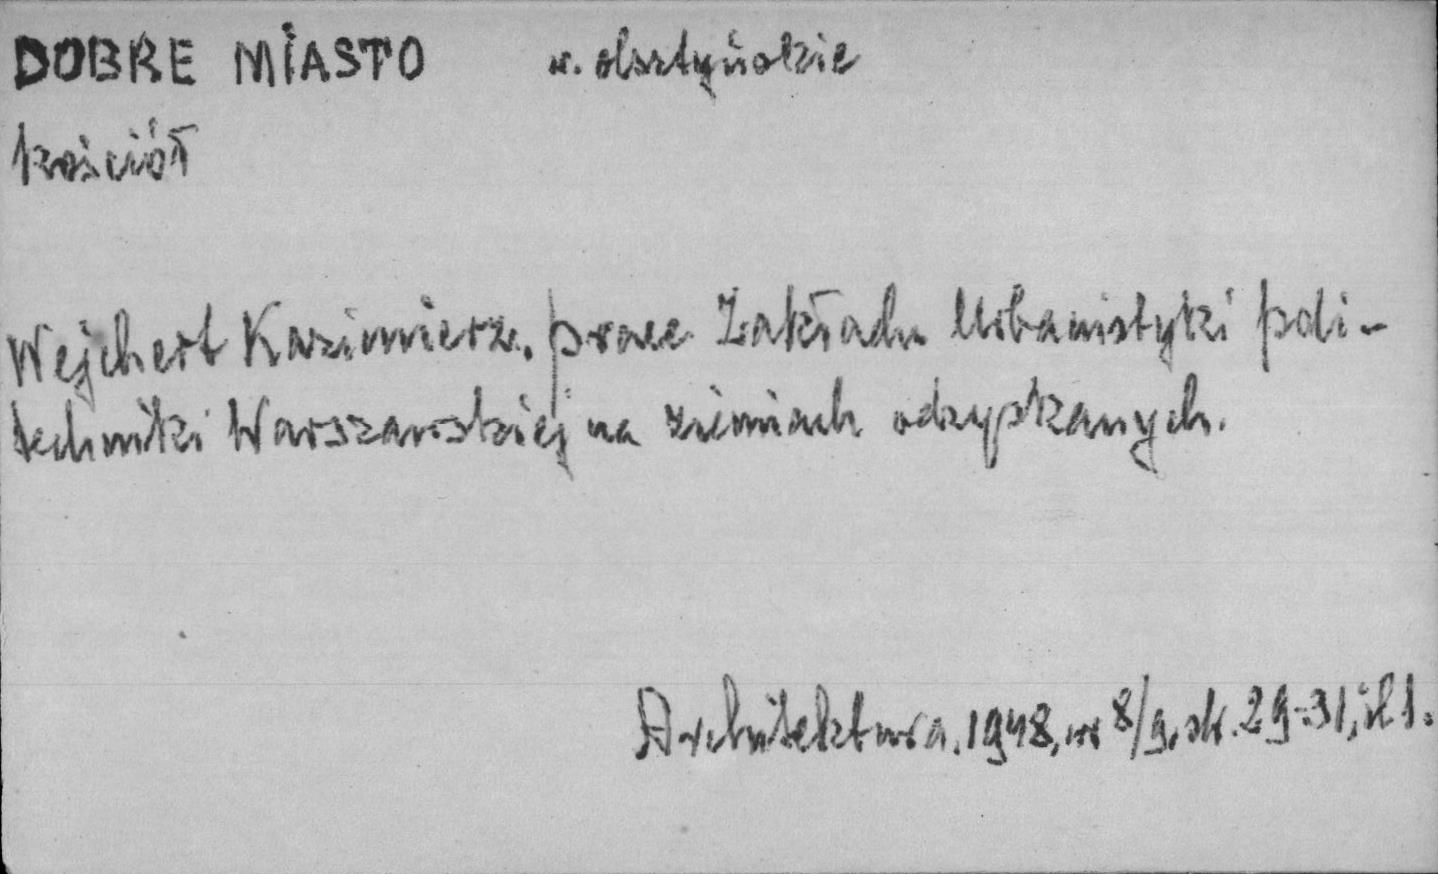 DOBRE MIASTO w. olsztyńskie
kościół
Wejchert Kazimierz. prace Zakładu Urbanistyki poli-
techniki Warszawskiej na ziemiach odzyskanych.
Architektura. 1948, nr 8/9, str. 29-31, il 1.